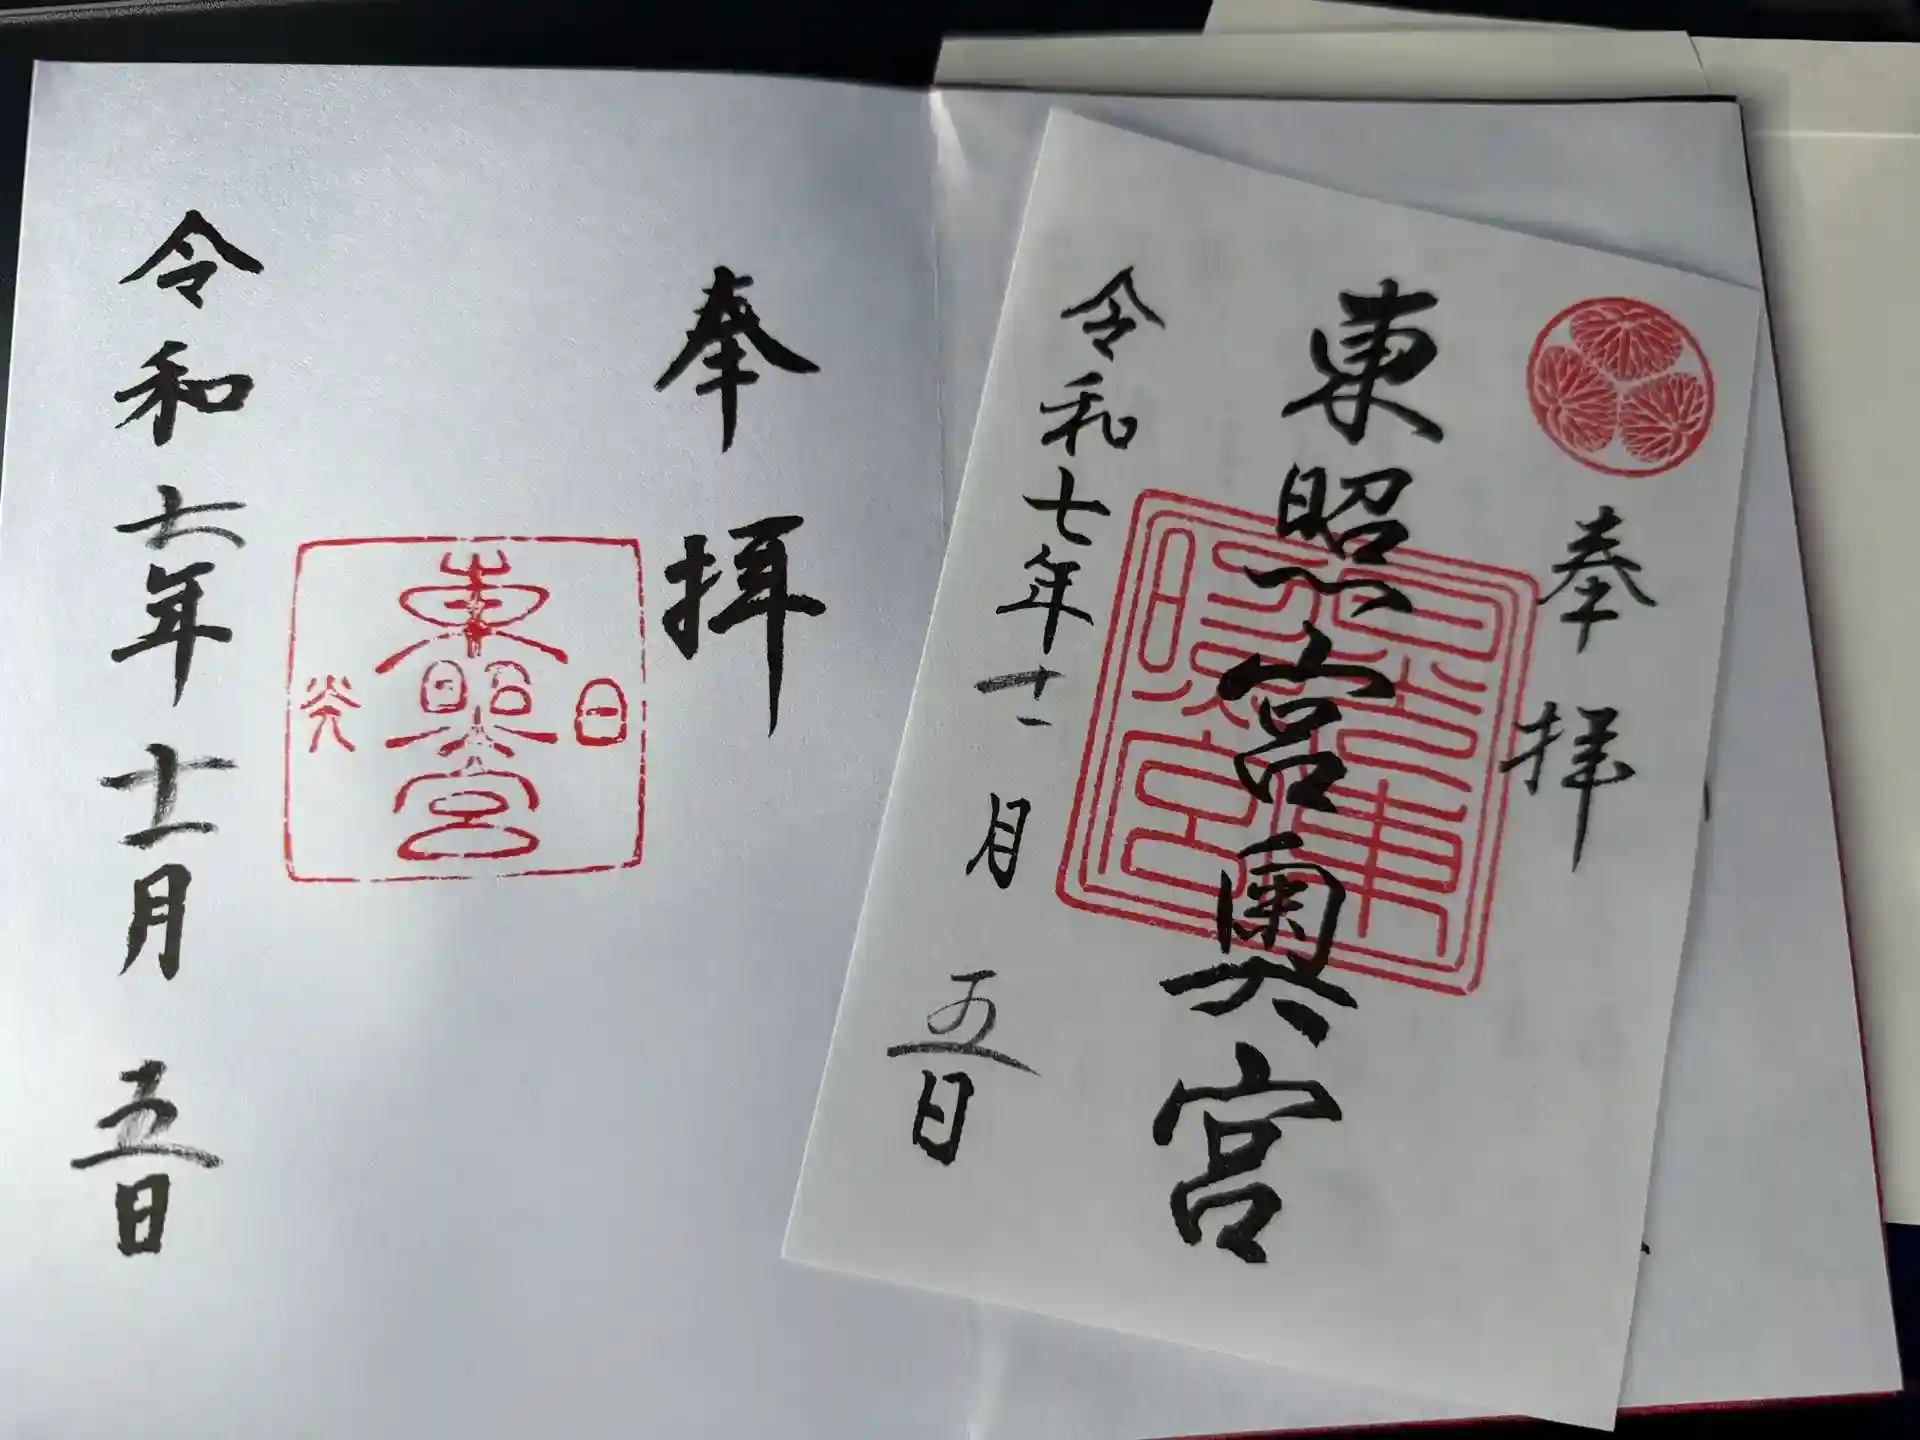 奉拝
東照宮奥宮
東
照宮
令和七年十一月五日
奉拝
日
東照宮
光
令和六年十一月五日